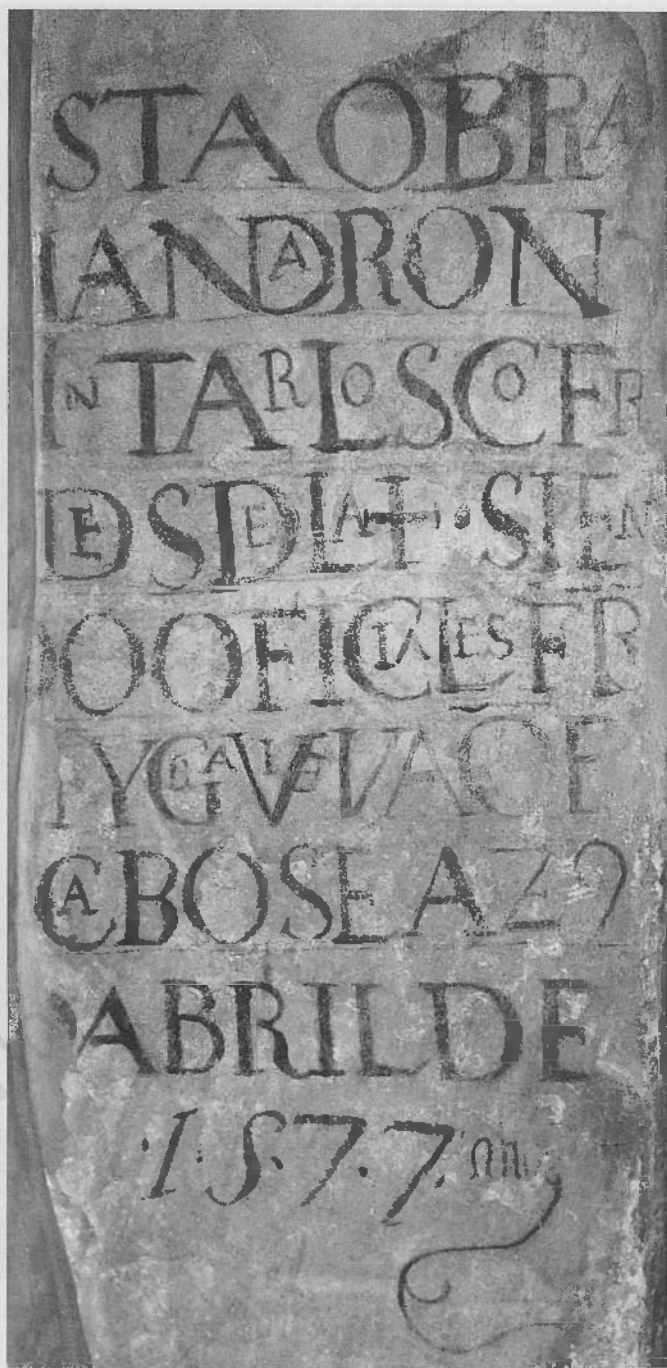 STA OBRA
ANDARON
NTAR LOS COFR
DES DE LA + SIEN
DO OFICIALES FR
Y
CABOSE A 29
ABRIL DE
·1·5·7·7·